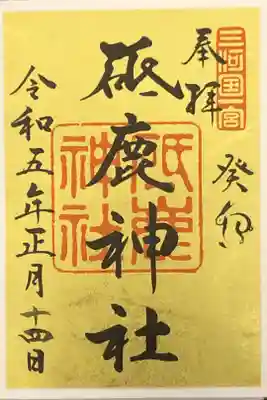 三河国一宮
奉拝
癸卯
砥鹿神社
砥鹿神社
令和五年正月十四日